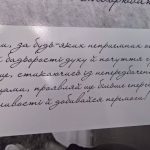 за будь-яких неприємних
бадьорості духу й почуття
ще, стикаючись із непередбаче
проявляй ще більше
ливості й добивайся перемоги!